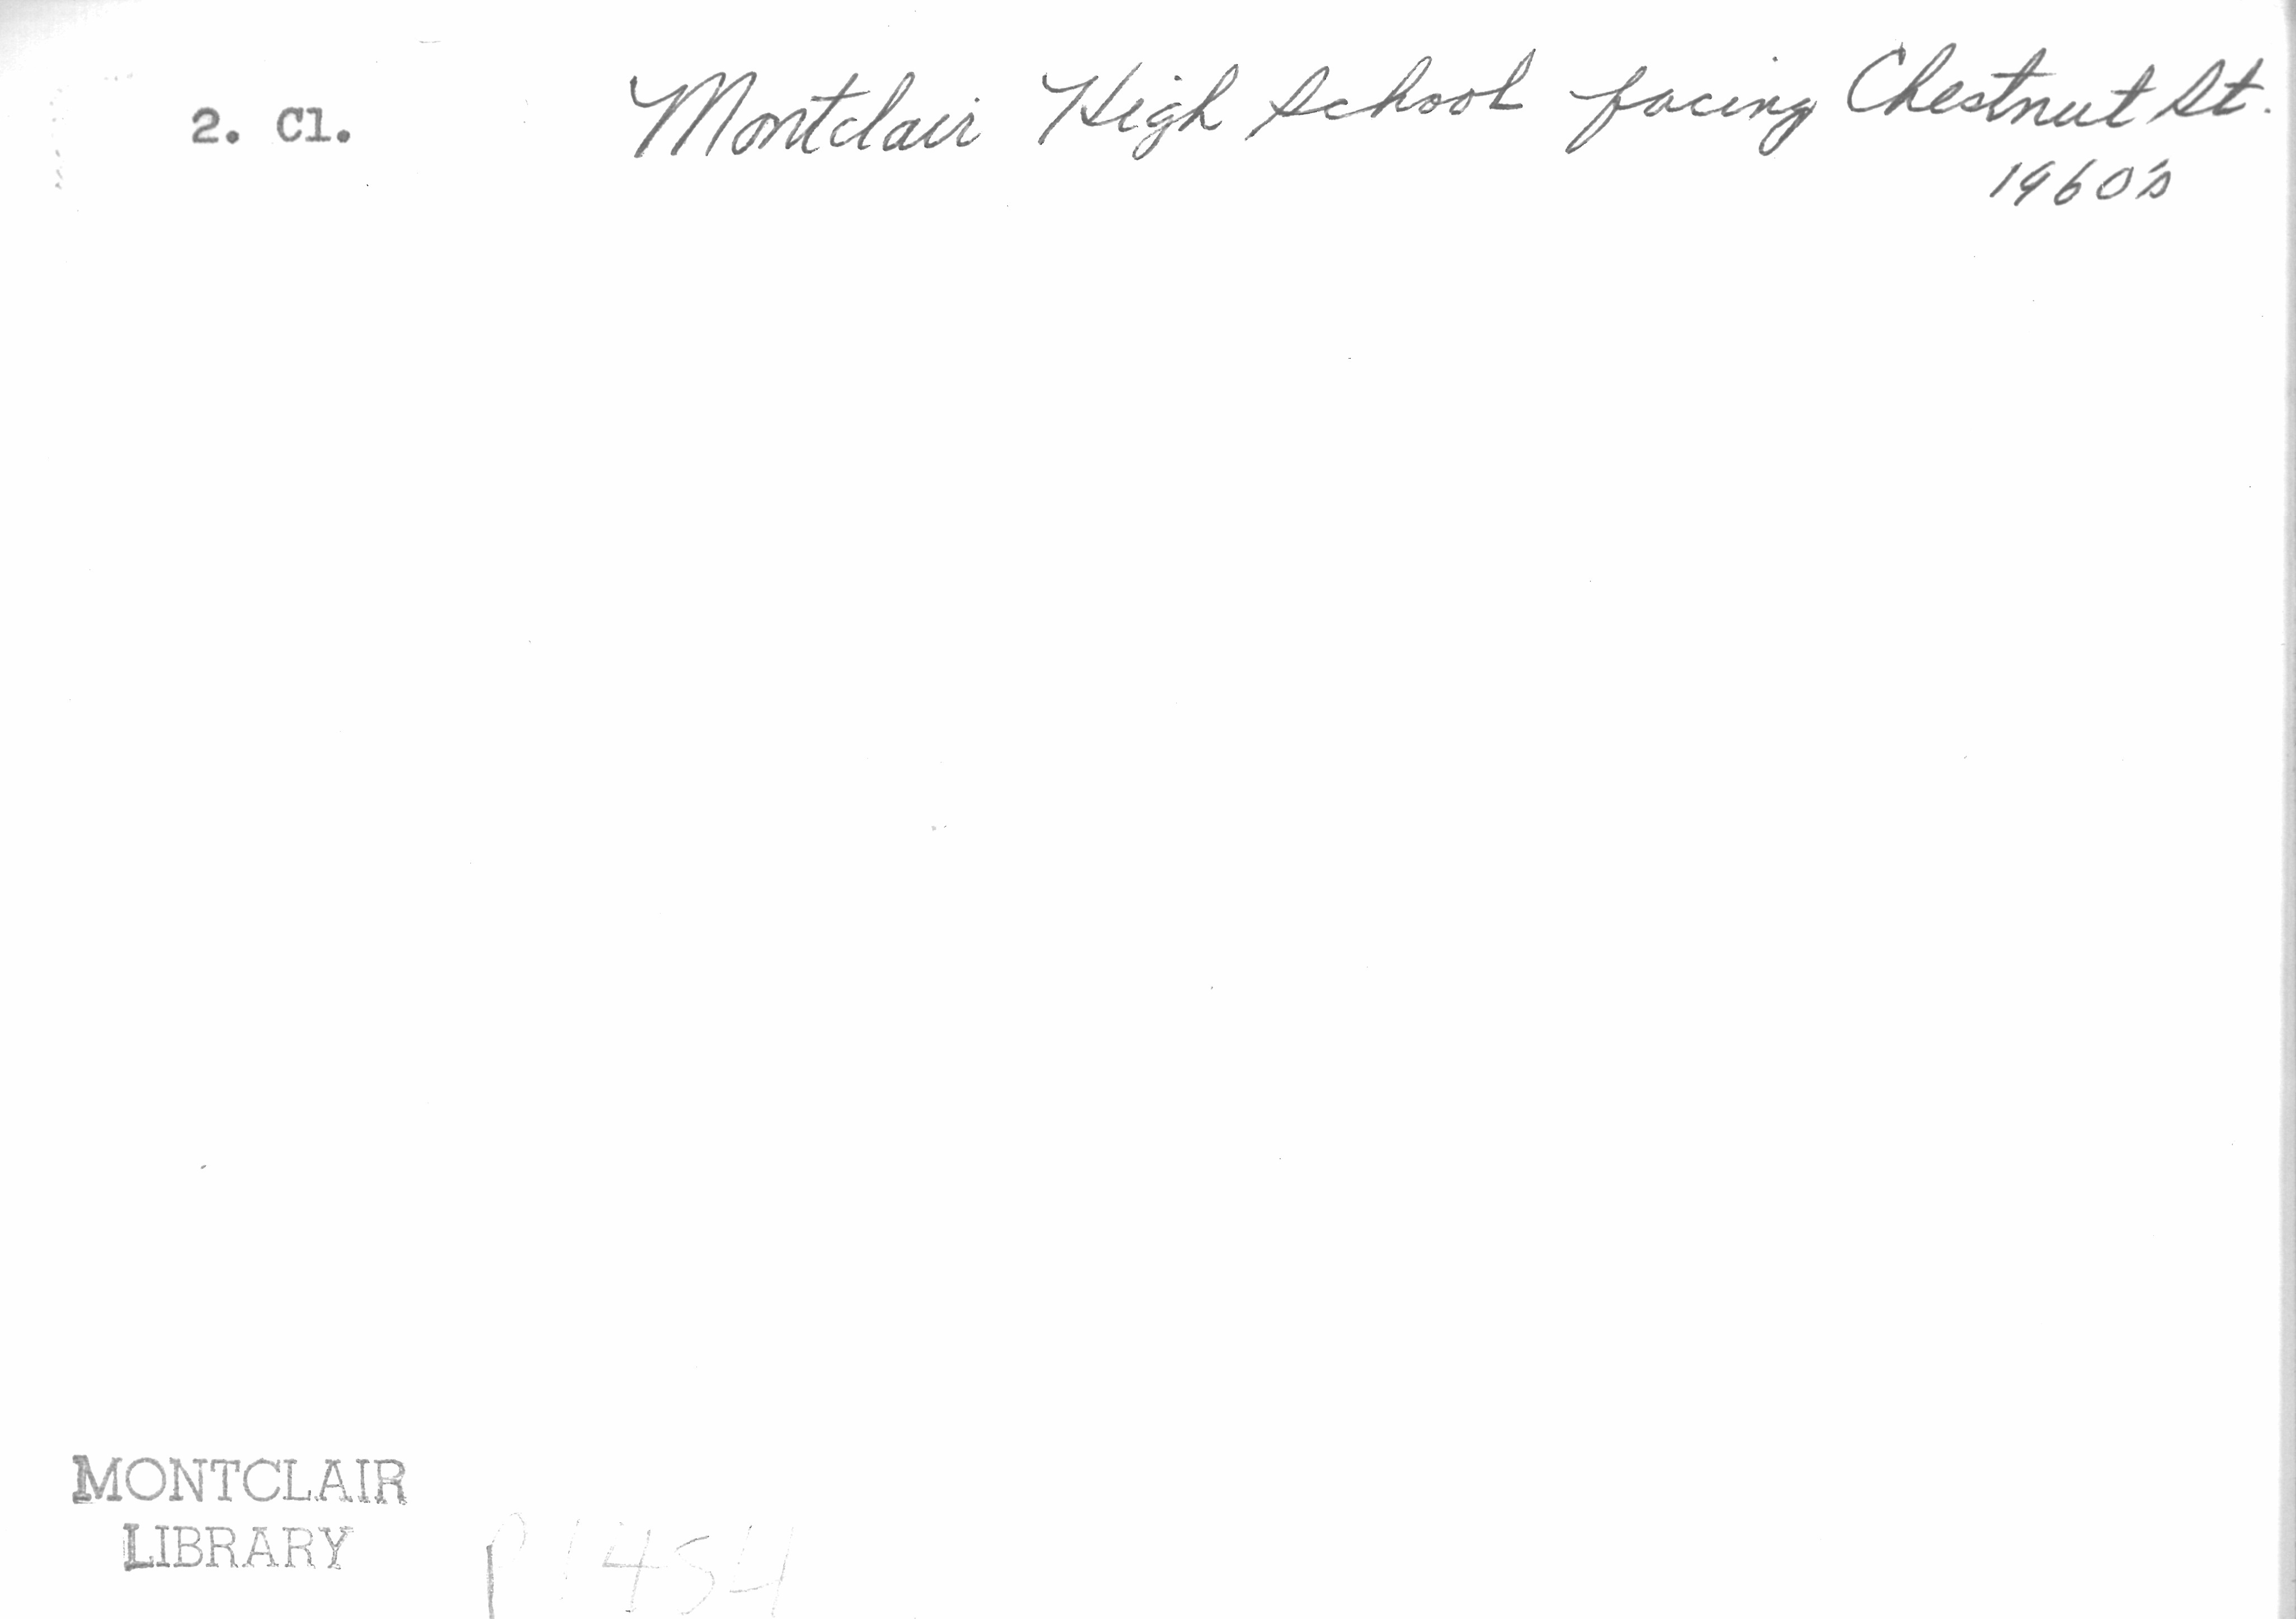 2. Cl. Montclair High School facing Chestnut St.
1960's
MONTCLAIR
LIBRARY
P1454